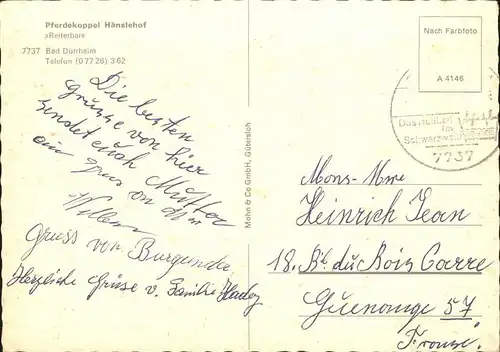 Pferdekoppel Hänslehof
»Reiterbar«
7737 Bad Dürrheim
Telefon (0 77 26) 3 62
Die besten
grüsse von hier
sendet euch Mütter
Gruss von Burgunda
Herzliche Grüse v. Familie
Mohn & Co GmbH, Gütersloh
Nach Farbfoto
A 4146
im
Schwarzwald
7737
Mons-Mme
Heinrich Jean
18. Bt du Bois Carre
Guenange 57